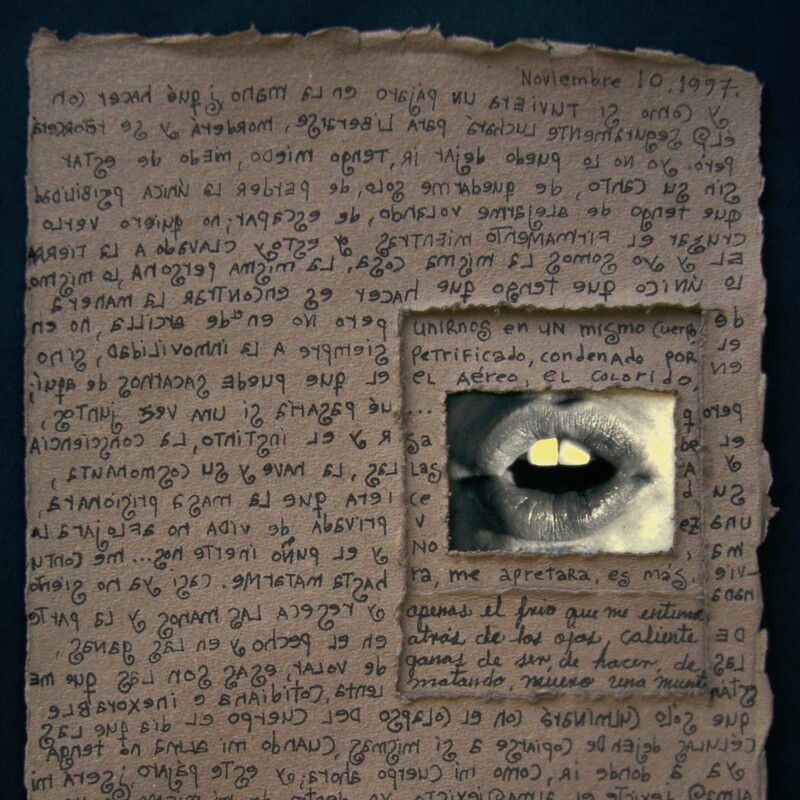 Noviembre 10, 1997.
y como si tuviera un pájaro en la mano ¿qué hacer con
él? Seguramente luchará para liberarse, morderá y se retorcerá
pero yo no lo puedo dejar ir, tengo miedo, miedo de estar
sin su canto, de quedarme solo, de perder la única posibilidad
que tengo de alejarme volando, de escapar; no quiero verlo
cruzar el firmamento mientras yo estoy clavado a la tierra
El y yo somos la misma cosa, la misma persona, lo mismo.
lo único que tengo que hacer es encontrar la manera
de unirnos en un mismo cuerpo pero no en de arcilla, no en
el petrificado, condenado por siempre a la inmovilidad, sino
en el aéreo, el colorido, el que puede sacarnos de aquí;
pero ... qué pasaría si una vez juntos,
el sa be R y el instinto, la consciencia
y las las, la nave y su cosmonauta,
su ce iera que la masa prisionara,
una v ez privada de vida no aflojara la
ma No y el puño inerte nos... me contu
viera, me apretara, es más, hasta matarme. casi ya no siento
apenas el frio que me entume y reseca las manos y la parte
de atrás de los ojos, caliente en el pecho y en las ganas,
las ganas de ser, de hacer, de de volar, esas son las que me
están matando, muero una muerte lenta, cotidiana e inexorable
que solo culminará con el colapso del cuerpo el día que las
células dejen de copiarse a si mismas, cuando mi alma no tenga
ya a donde ir, como mi cuerpo ahora; y este pájaro ¿será mi
alma?